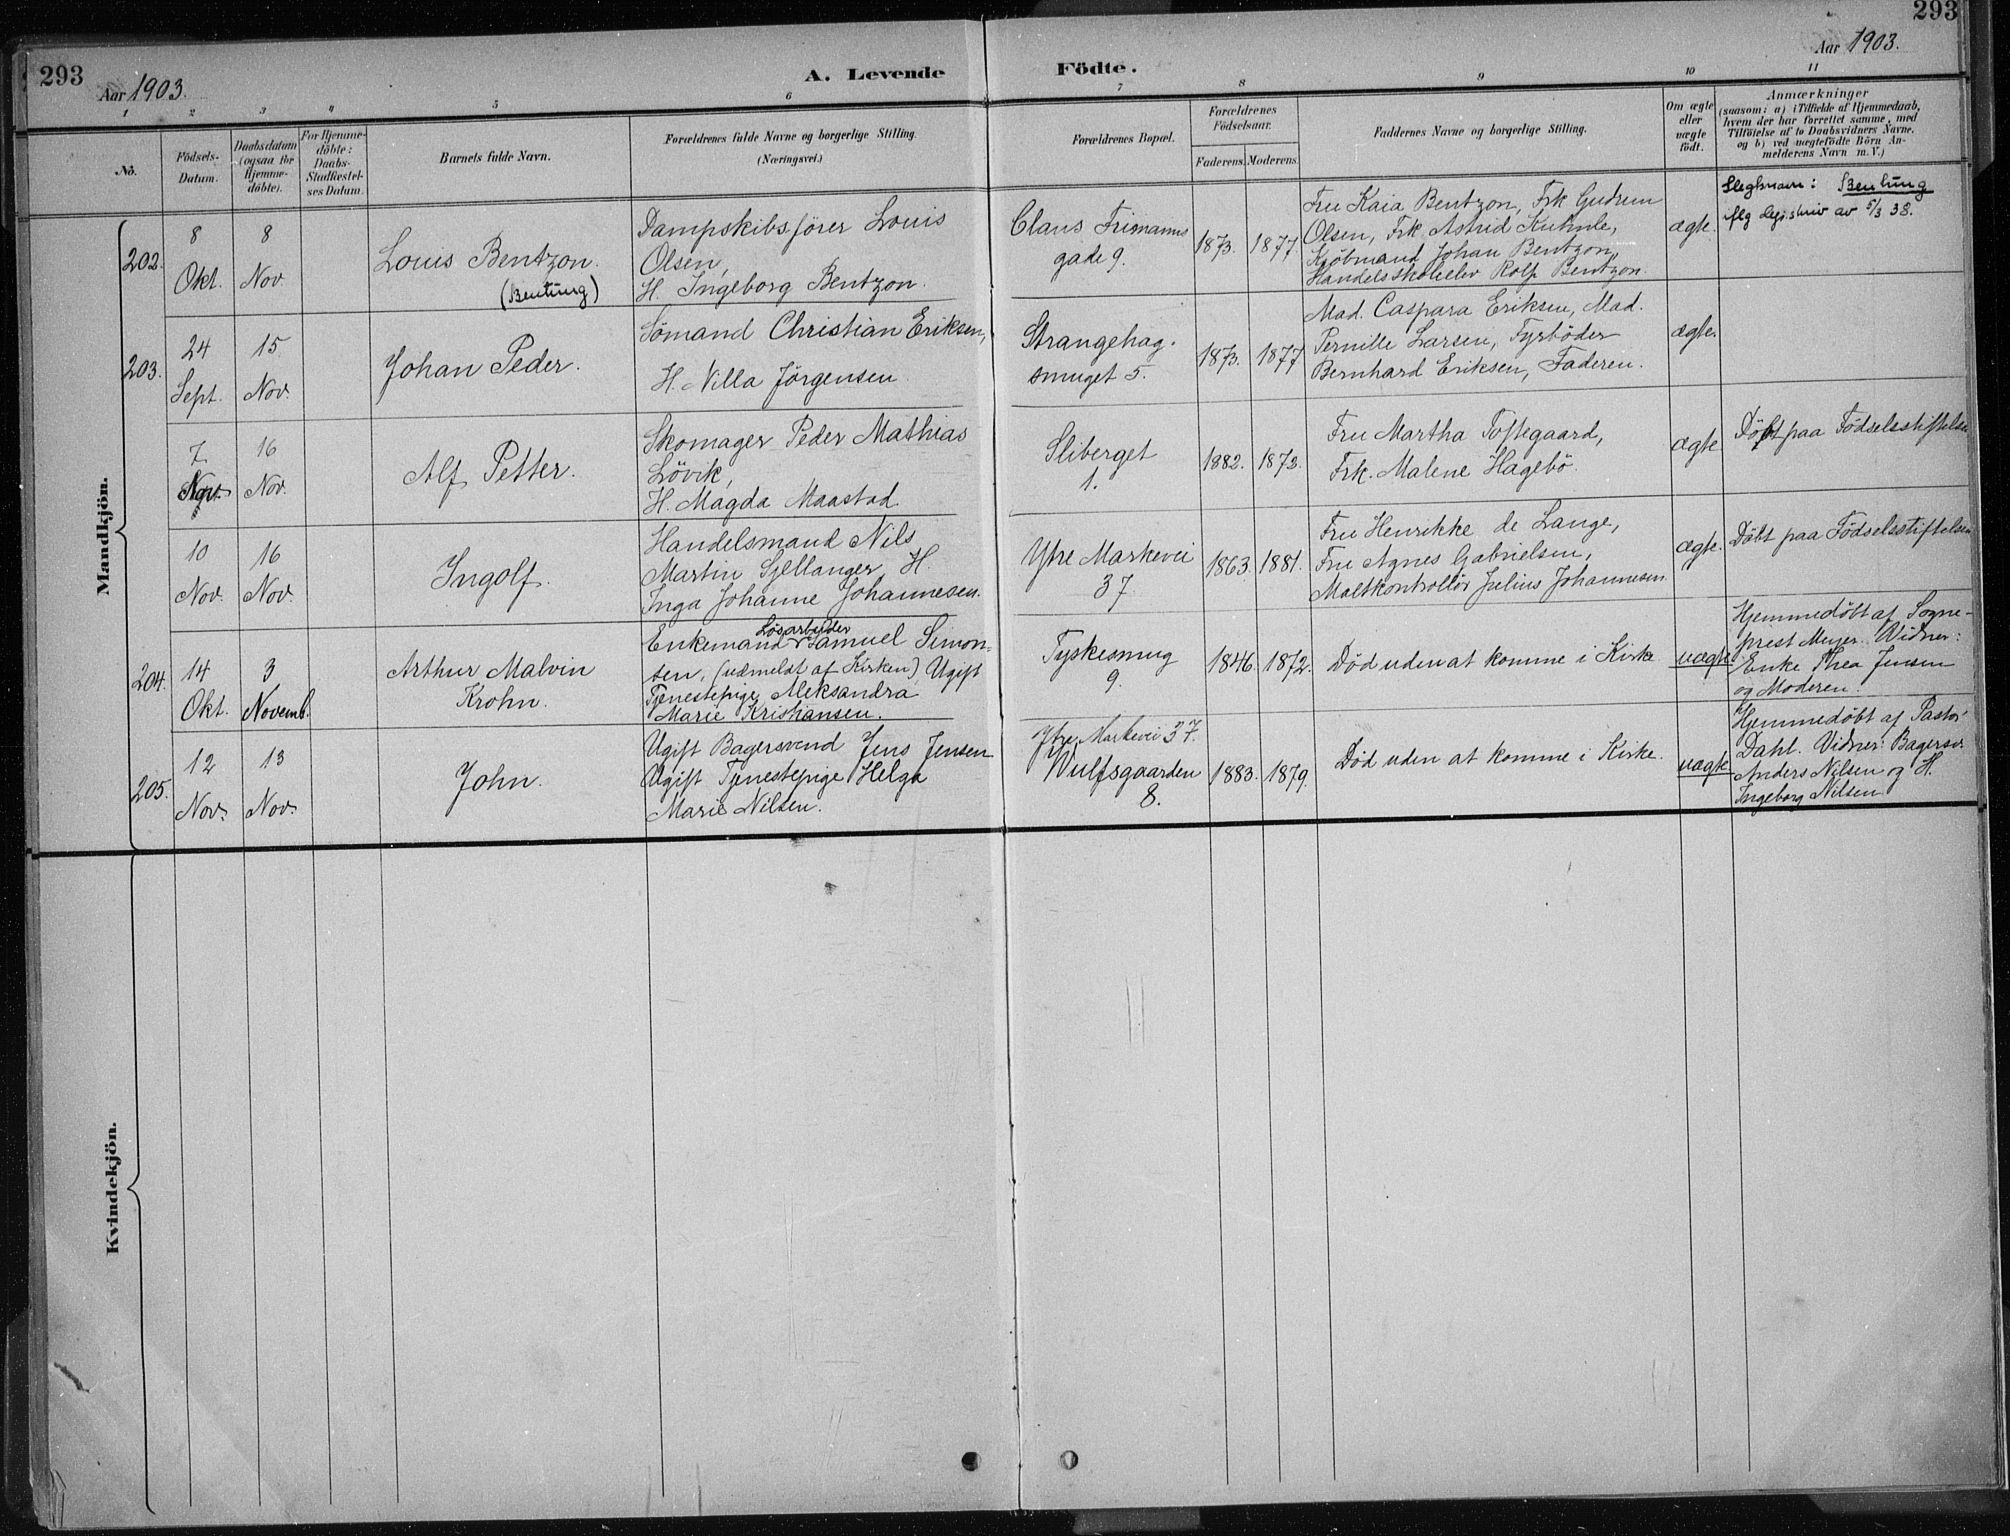 293
Aar 1903.
A. Levende
Födte.
Aar 1903.
293
1
2
3
4
5
6
7
8
9
10
11
No.
Födsels-
Datum.
Daabsdatum
(ogsaa for
Hjemme-
döbte).
For Hjemme-
döbte:
Daabs-
Stadfæstel-
ses Datum.
Barnets fulde Navn.
Forældrenes fulde Navne og borgerlige Stilling.
(Næringsvei.)
Forældrenes Bopæl.
Forældrenes
Födselsaar.
Faderens.
Moderens.
Faddernes Navne og borgerlige Stilling.
Om ægte
eller
uægte
födt.
Anmærkninger
(saasom: a) i Tilfælde af Hjemmedaab,
hvem der har forrettet samme, med
Tilföielse af to Daabsvidners Navne.
og b) ved uægtefödte Börn An-
melderens Navn m. V.)
Mandkjön.
202.
8
Okt.
8
Nov
Louis Bentzon.
(Bentung)
Dampskibsförer Louis
Olsen,
H. Ingeborg Bentzon.
Claus Frimanns
gade 9.
1873.
1877
Fru Kaia Bentzon, Frk Gudrun
Olsen, Frk. Astrid Kuhnle,
Kjöbmand Johan Bentzon,
Handelsskoleelev Rolf Bentzon.
ægte.
Slegtsnavn: Bentung
iflg av 5/3 38.
203.
24
Sept.
15
Nov.
Johan Peder.
Sömand Christian Eriksen,
H. Nilla Jörgensen.
Strangehag-
smuget 5.
1873.
1877
Mad. Caspara Eriksen, Mad.
Pernille Larsen, Fyrböder
Bernhard Eriksen, Faderen.
ægte.
7
16
Nov.
Alf Petter.
Skomager Peder Mathias
Lövik,
H. Magda Maastad
Sliberget
1.
1882.
1872.
Fru Martha Toftegaard,
Frk. Malene Hagebö.
ægte
Döbt paa Fødselsstiftelsen
10
Nov.
16
Nov.
Ingolf.
Handelsmand Nils
Martin Sjellanger, H.
Inga Johanne Johannesen.
Ytre Markevei
37
1863.
1881.
Fru Henrikke de Lange,
Fru Agnes Gabrielsen,
Maltkontrollör Julius Johannesen
ægte.
Døbt paa Födselsstiftelsen
204.
14
Okt.
3
Novemb.
Arthur Malvin
Krohn.
Løsarbeider
Enkemand Samuel Simon-
sen, (udmeldt af Kirken) Ugift
Tjenestepige Aleksandra
Marie Kristiansen.
Tyskesmug
9.
1846.
1872.
Død uden at komme i Kirke
uægte
Hjemmedøbt af Sogne-
prest Meyer. Vidner:
Enke Thea Jensen
og Moderen.
205.
12
Nov.
13
Nov.
John.
Ugift Bagersvend Jens Jensen
Ugift Tjenestepige Helga
Marie Nilsen.
Ytre Markevei 37.
Wulfsgaarden
8.
1883.
1879.
Død uden at komme i Kirke.
uægte
Hjemmedøbt af Pastor
Dahl. Vidner: Bagersv.
Anders Nilsen og H.
Ingeborg Nilsen
Kvindekjön.